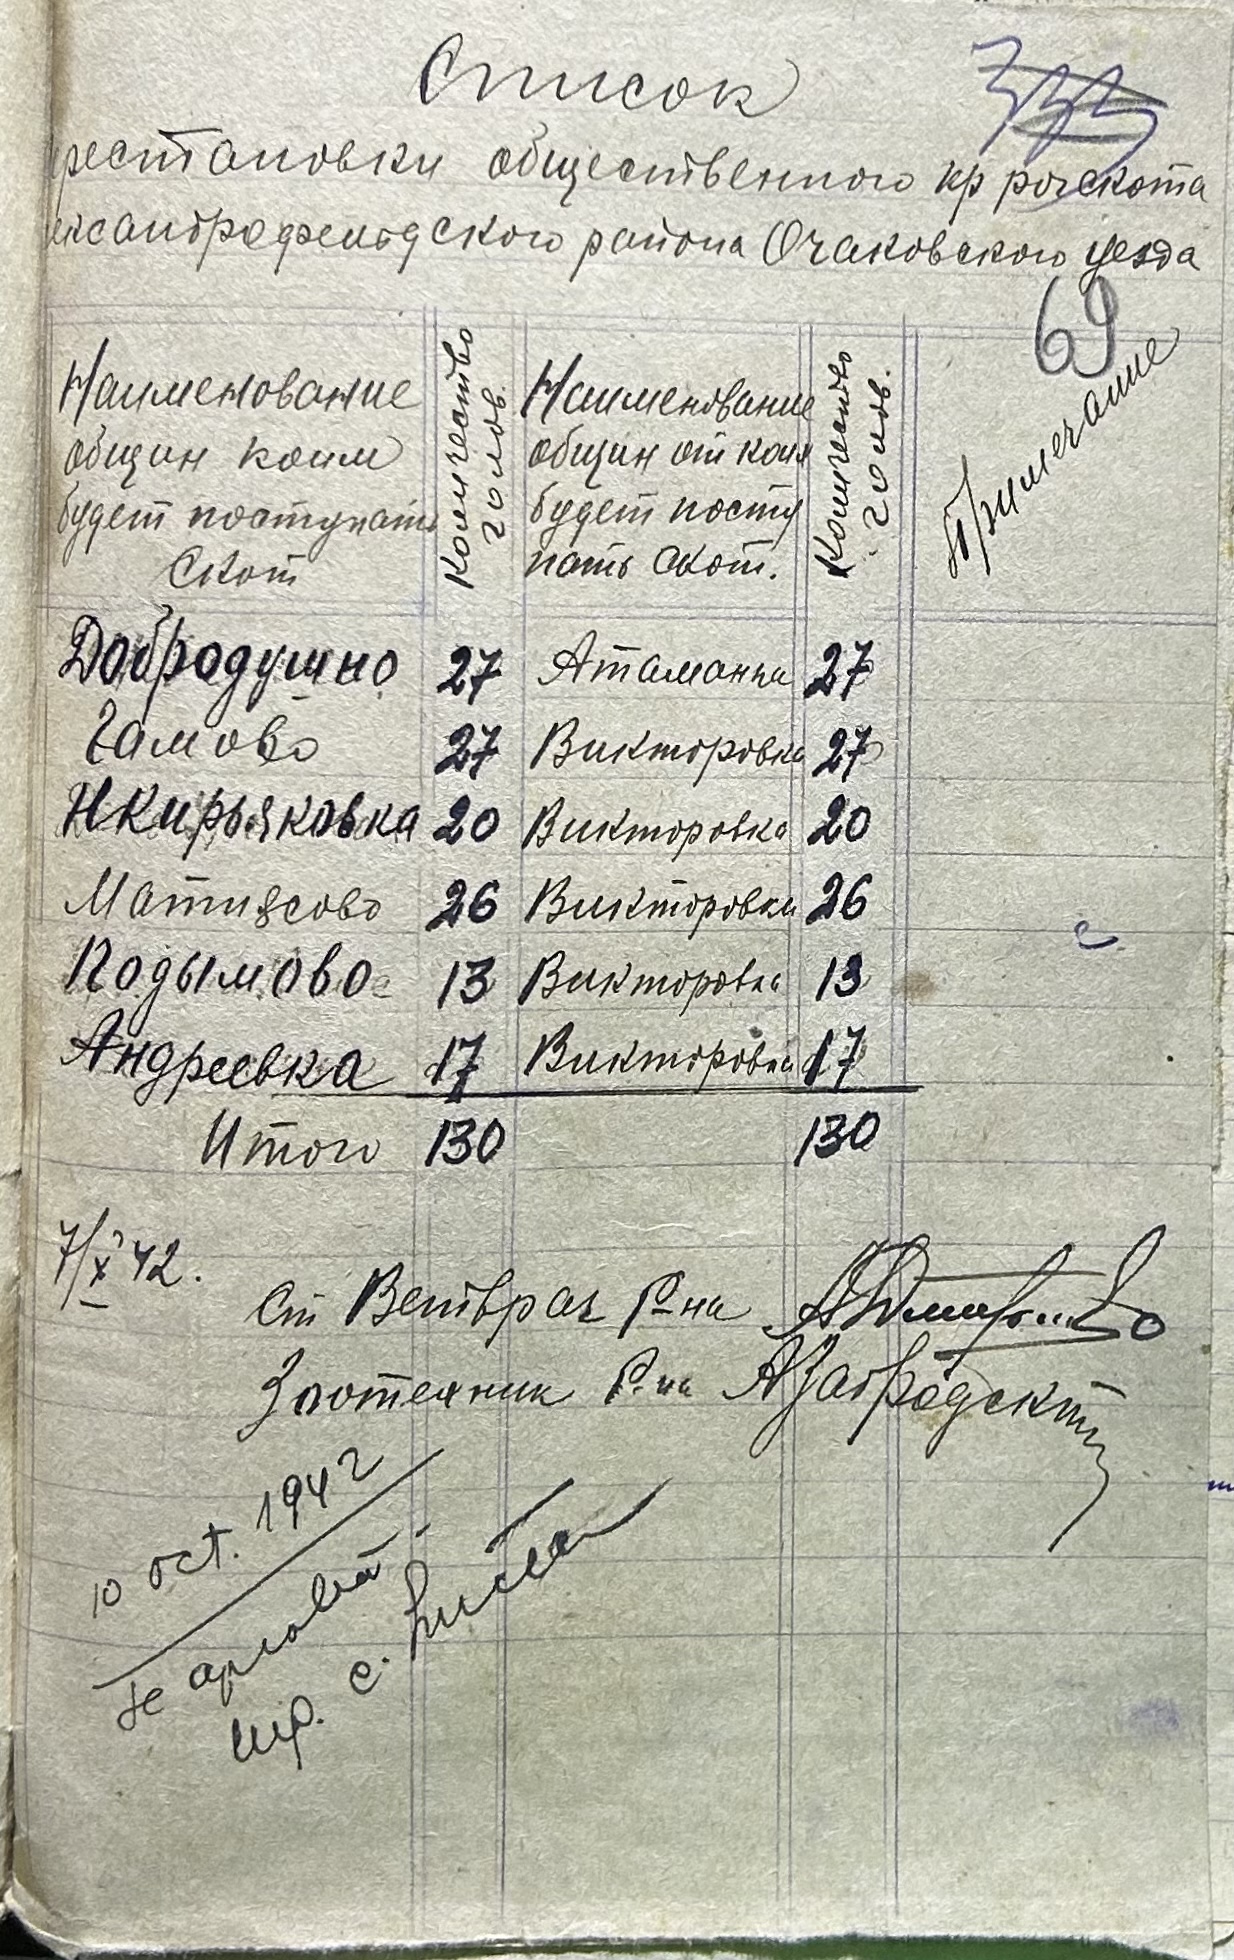 Список
рестановки общественного кр рог скота
ександрофельдского района Очаковского уезда
69
Наименование общин коим будет поступать Скот
Количество голов.
Наименование общин от коих будет поступать скот.
Количество голов.
Примечание
Добродушно 27 Атаманка 27
Гамово 27 Викторовка 27
НКирьяковка 20 Викторовка 20
Матиясово 26 Викторовка 26
Подымово 13 Викторовка 13
Андреевка 17 Викторовка 17
Итого 130 130
7/X 42.
Ст Ветврач Р-на
Зоотехник Р-на АЗагродский
10 oct. 1942
Se aprobă